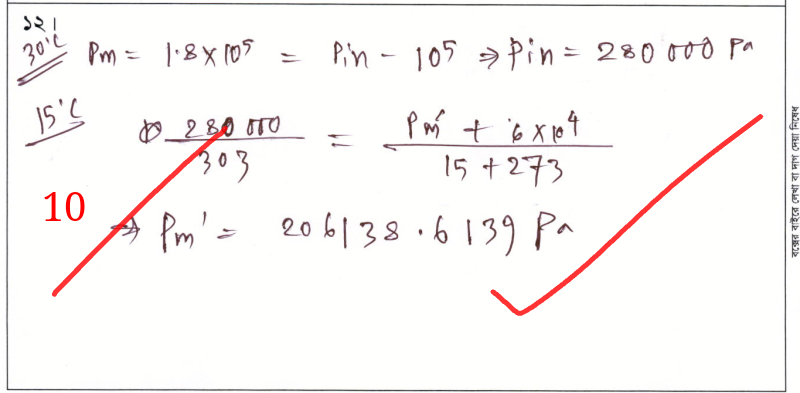 ১২।
30°C Pm = 1.8 × 10⁵ = Pin - 10⁵ ⇒ Pin = 280 000 Pa
15°C 280 000 / 303 = Pm' + 6 × 10⁴ / 15 + 273
10
⇒ Pm' = 206138.6139 Pa
বক্সের বাইরে লেখা বা দাগ দেয়া নিষেধ